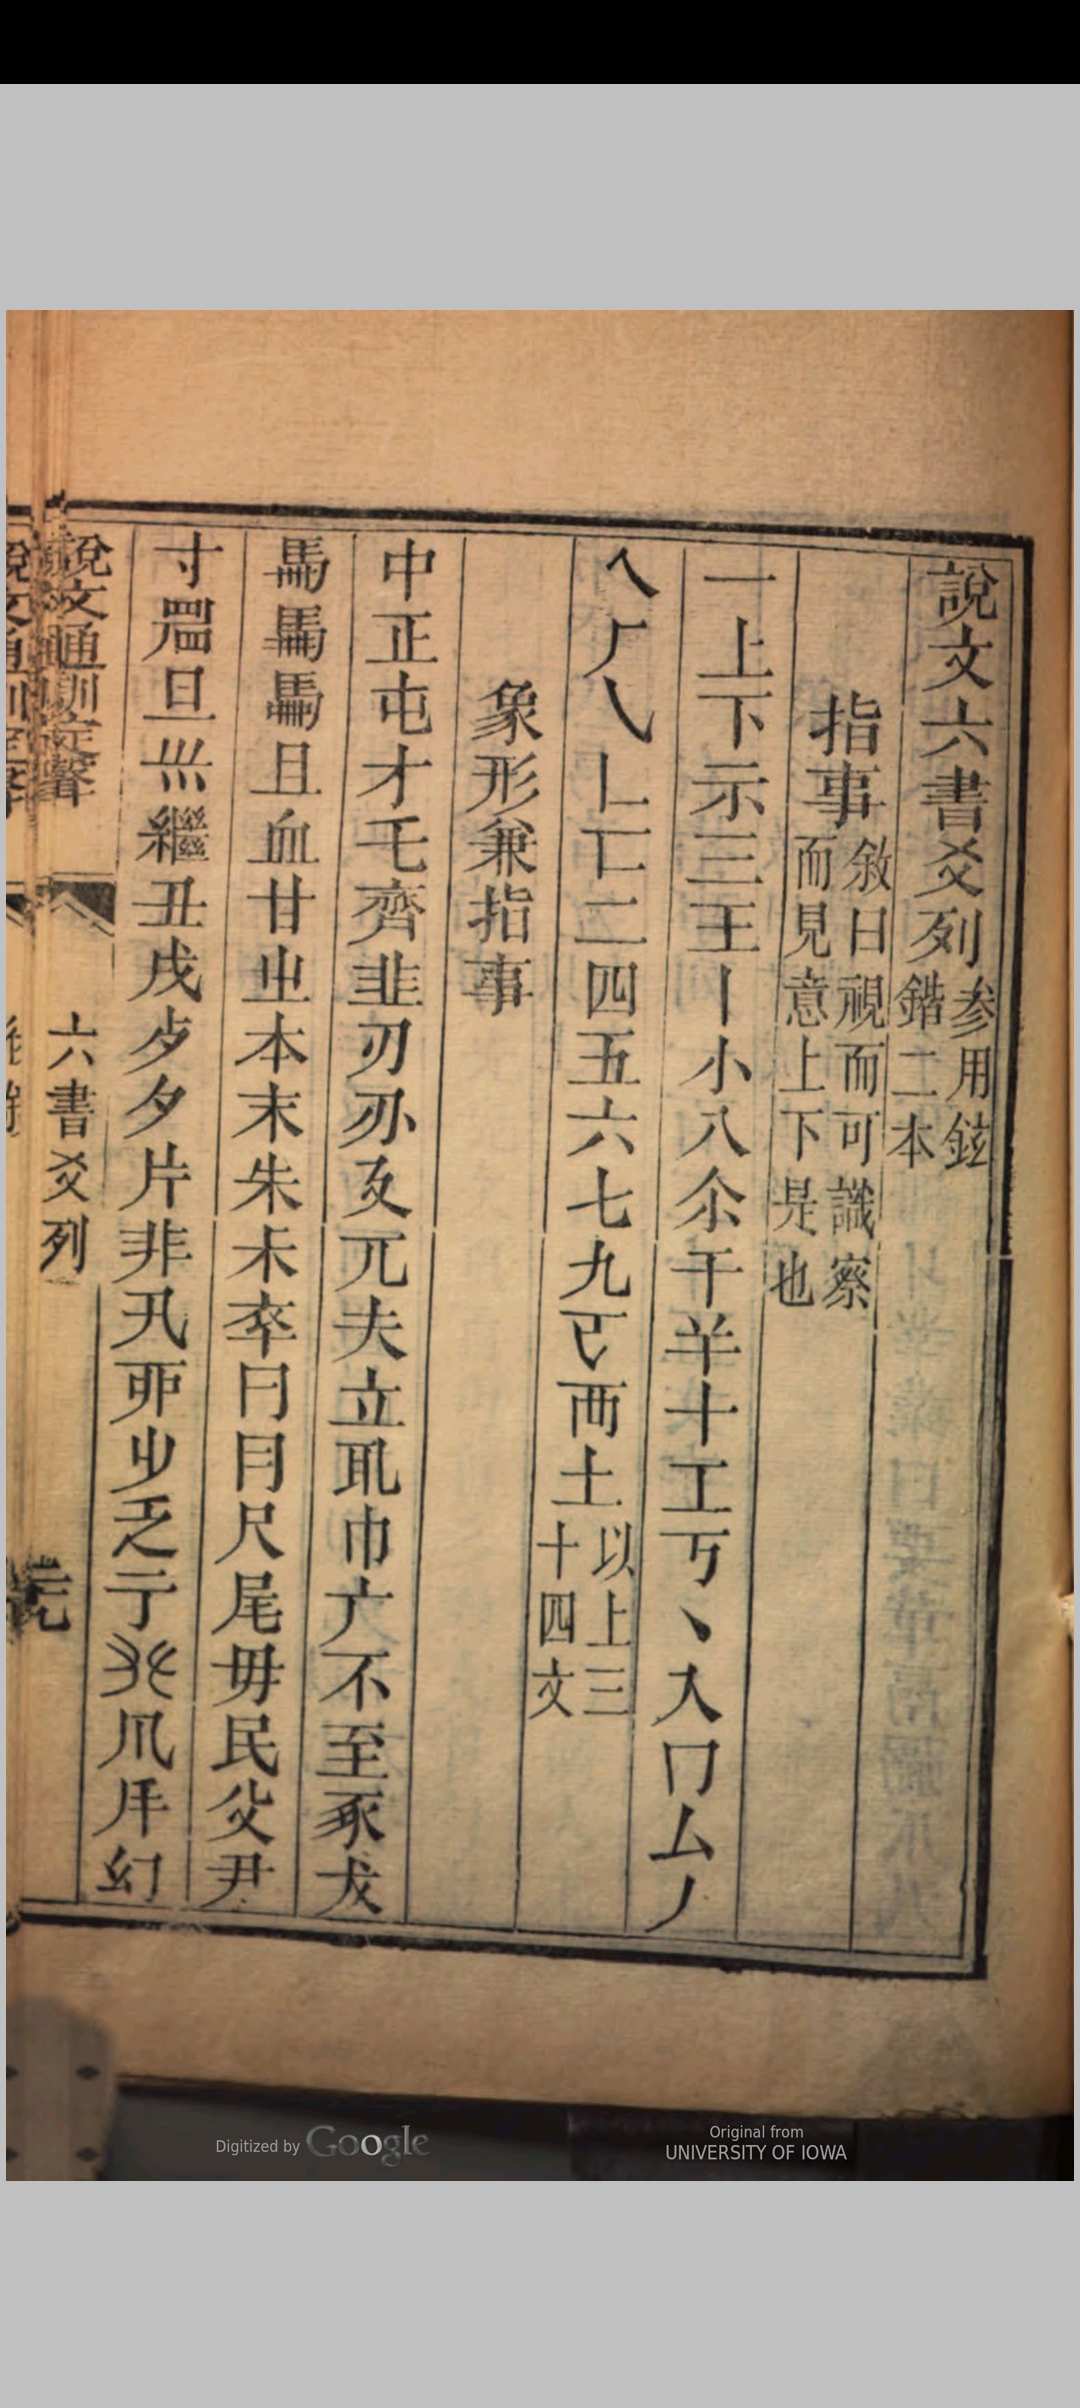 說文六書爻列參用鉉鍇二本
指事敘曰視而可識察而見意上下是也
一上下示三王丨小八尒干羊十工丂丶入冂厶丿
乀𠂆乁𠃊丅二四五六七九𠀁襾土以上三十四文
象形兼指事
中正屯才乇齊韭刃刅叐兀夫立耴巾亣不至豖犮
馬馵且血甘㞢本末朱未卒曰冃尺尾毋民父尹
寸旦繼丑戌歺夕片非卂乏亍爪幻
說文通訓定聲
六書爻列
Digitized by Google
Original from
UNIVERSITY OF IOWA